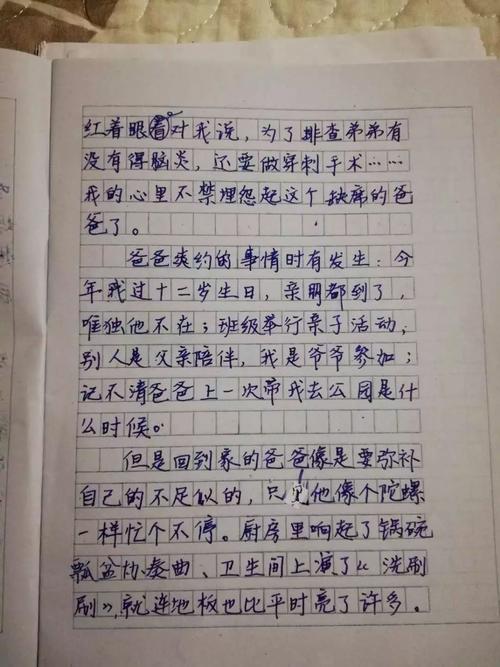 红着眼看对我说，为了排查弟弟有
没有得脑炎，还要做穿刺手术……
我的心里不禁埋怨起这个缺席的爸
爸了。
爸爸爽约的事情时有发生：今
年我过十二岁生日，亲朋都到了，
唯独他不在；班级举行亲子活动，
别人是父亲陪伴，我是爷爷参加；
记不清爸爸上一次带我去公园是什
么时候。
但是回到家的爸爸像是要弥补
自己的不足似的，只见他像个陀螺
一样忙个不停。厨房里响起了锅碗
瓢盆协奏曲、卫生间上演了《洗刷
刷》，就连地板也比平时亮了许多。